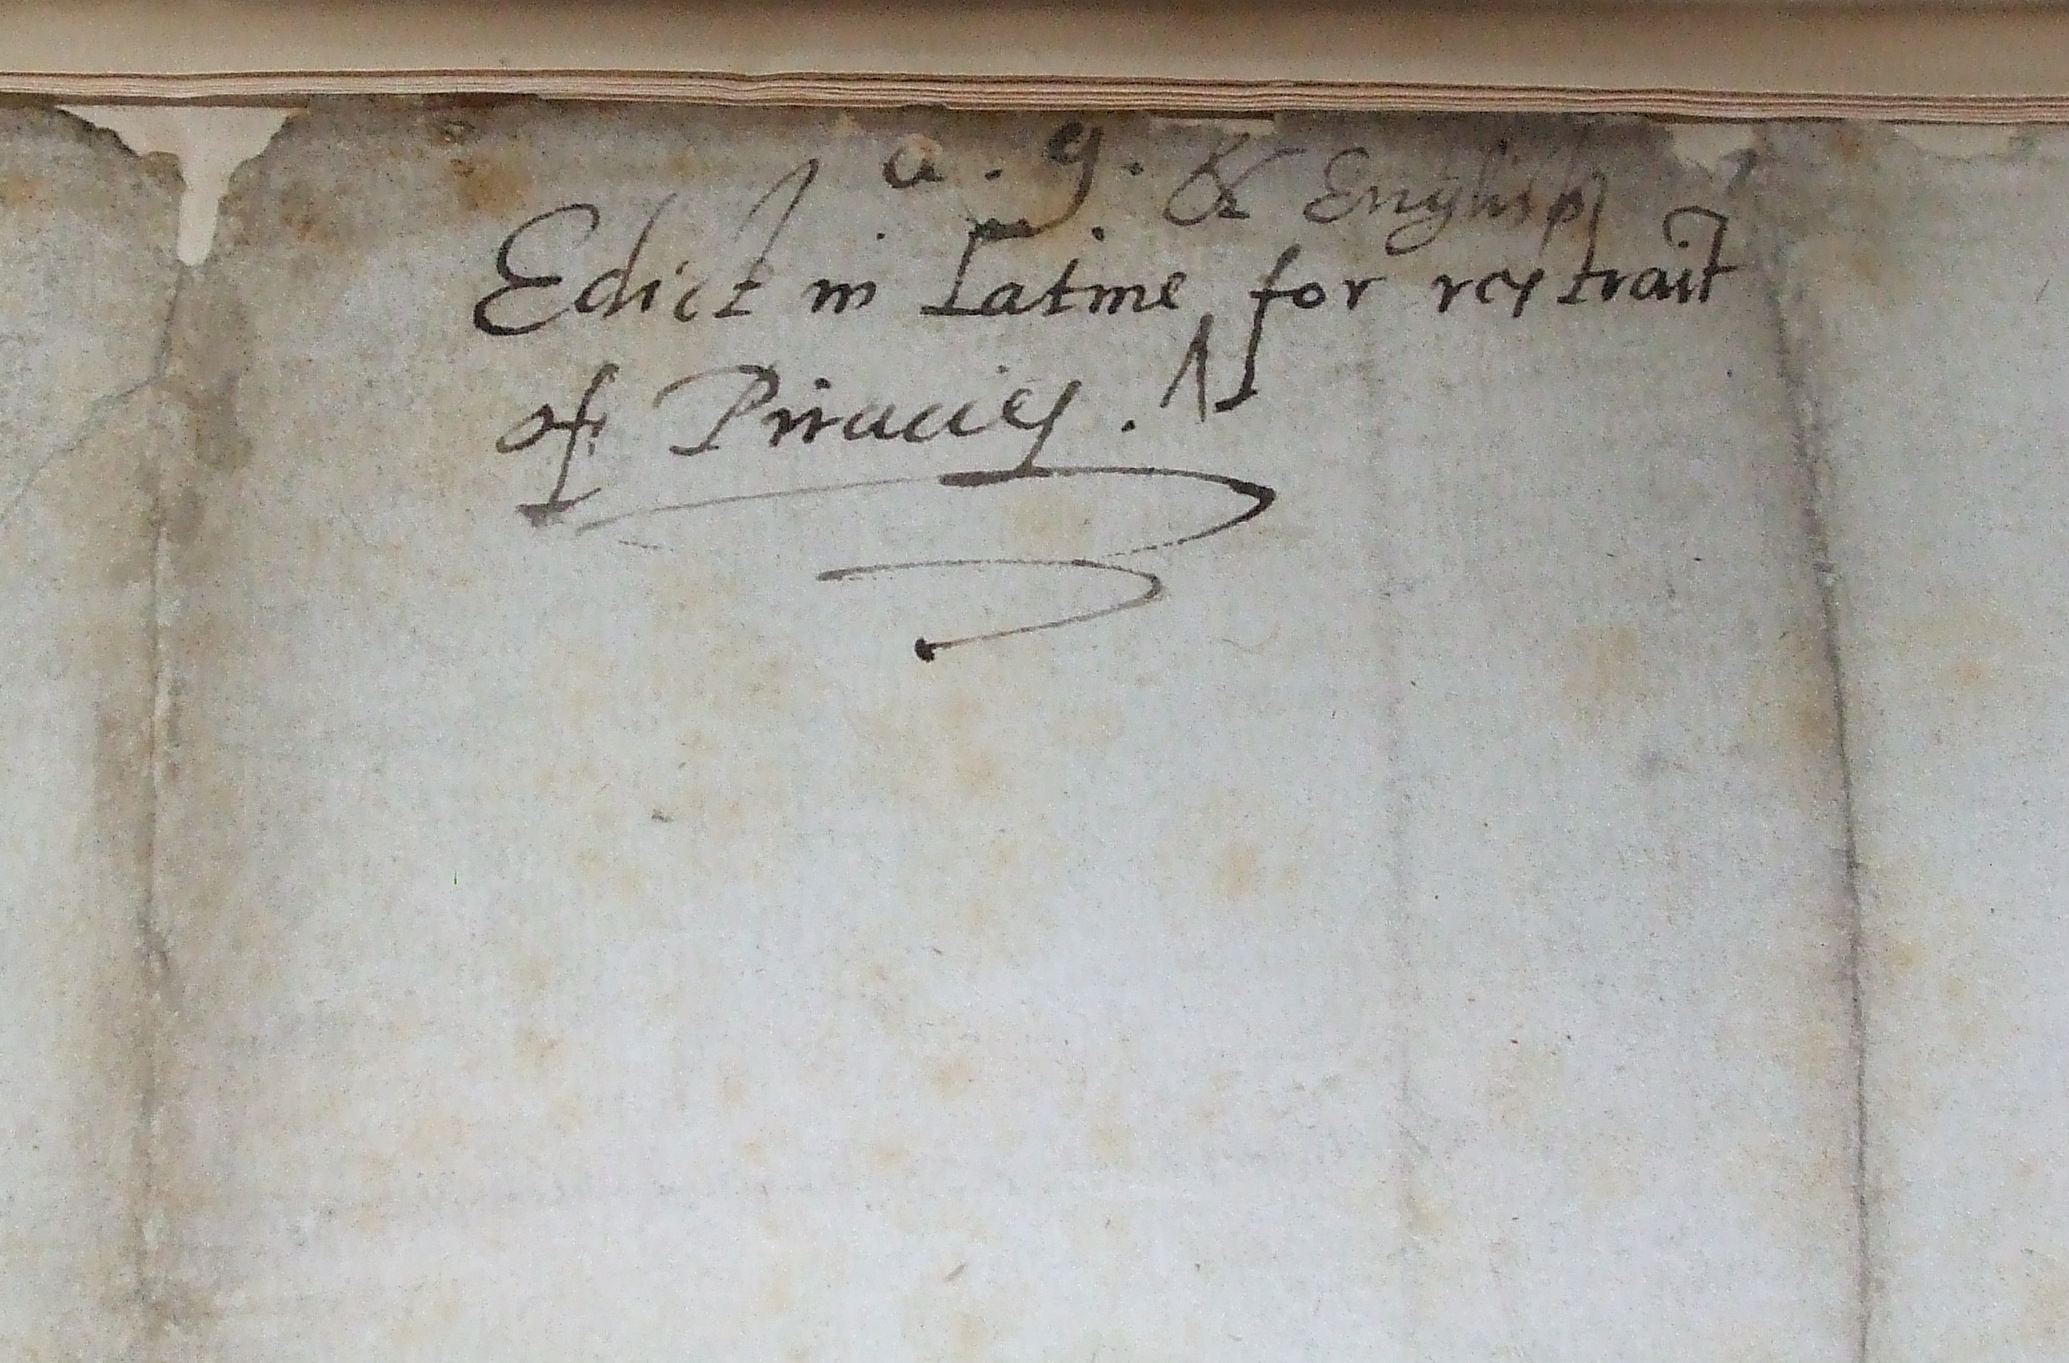 a. 9. & English
Edict in Latine ^ for restrait
of Piracies.